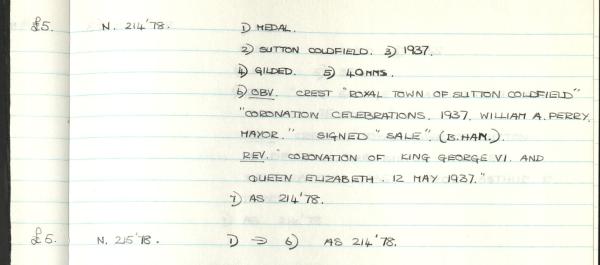 £5. N. 214'78. 1) MEDAL.
2) SUTTON COLDFIELD. 3) 1937.
4) GILDED. 5) 40MMS.
6) OBV. CREST "ROYAL TOWN OF SUTTON COLDFIELD"
"CORONATION CELEBRATIONS. 1937. WILLIAM A. PERRY.
MAYOR." SIGNED "SALE". (B.HAM.).
REV. "CORONATION OF KING GEORGE VI. AND
QUEEN ELIZABETH. 12 MAY 1937."
7) AS 214'78.
£5. N. 215'78. 1) → 6) AS 214'78.